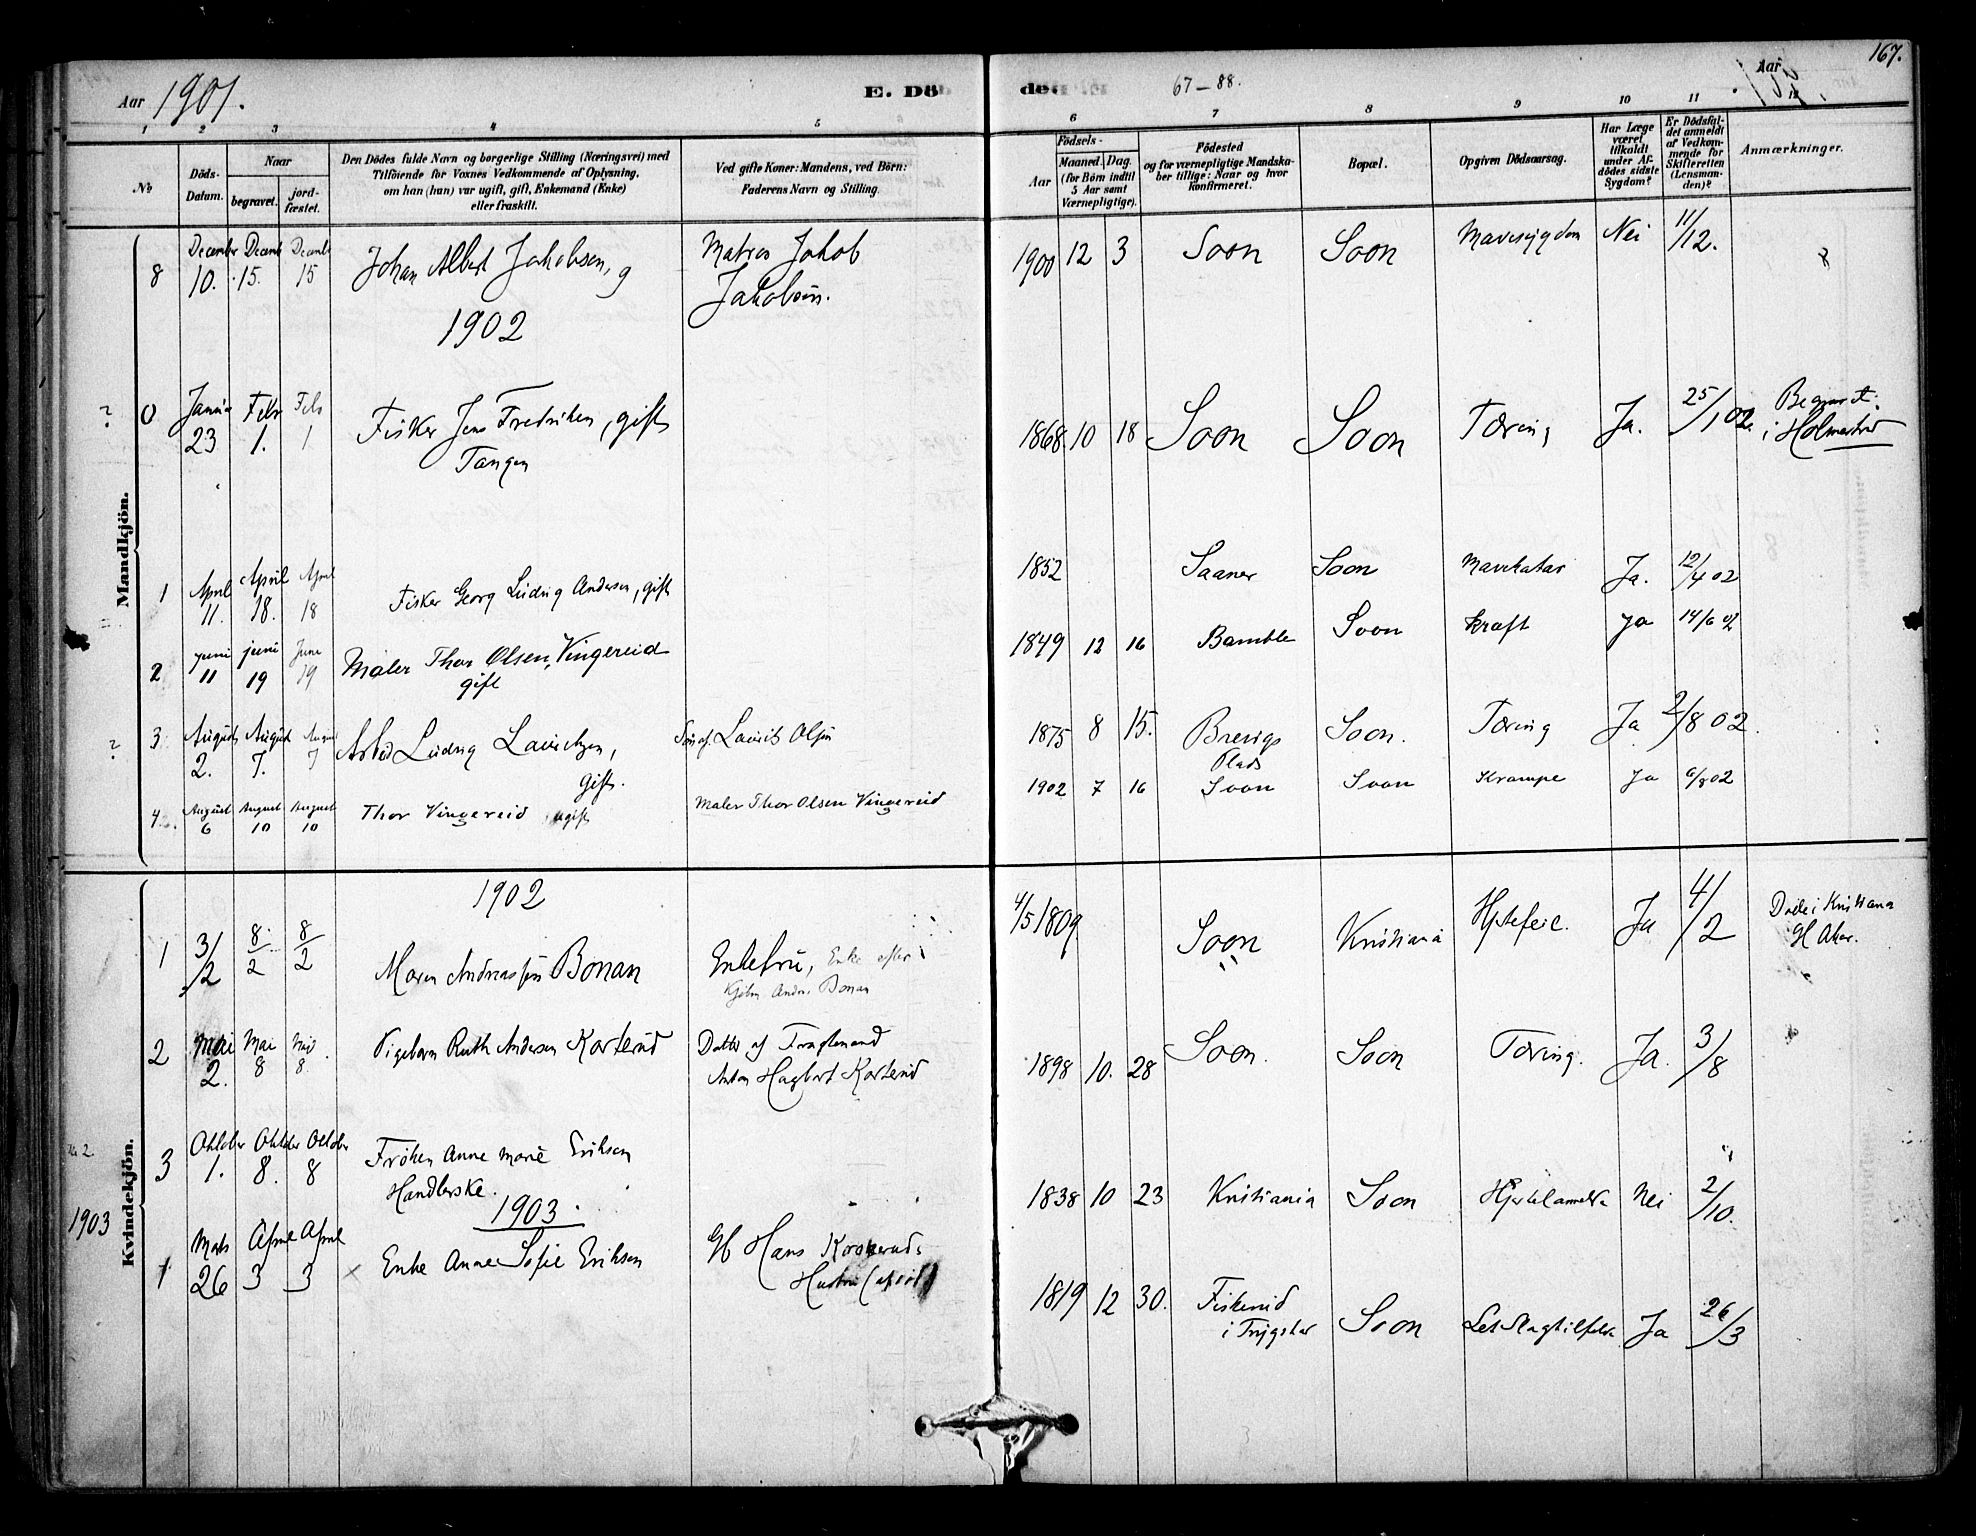 Aar 1901.
E. Döde
67–88.
Aar
167.
1 2 3 4 5 6 7 8 9 10 11 12
No
Döds-Datum.
Naar
begravet.
jord-fæstet.
Den Dödes fulde Navn og borgerlige Stilling (Næringsvei) med
Tilföiende for Voxnes Vedkommende af Oplysning,
om han (hun) var ugift, gift, Enkemand (Enke)
eller fraskilt.
Ved gifte Koner: Mandens, ved Börn:
Faderens Navn og Stilling.
Födsels-
Aar
Maaned. Dag.
(for Börn indtil
5 Aar samt
Værnepligtige).
Födested
og for værnepligtige Mandska-
ber tillige: Naar og hvor
konfirmeret.
Bopæl.
Opgiven Dödsaarsag.
Har Læge
været
tilkaldt
under Af-
dödes sidste
Sygdom?
Er Dödsfal-
det anmeldt
af Vedkom-
mende for
Skifteretten
(Lensman-
den)?
Anmærkninger.
Mandkjön.
8 December 10. Decemb 15. Decemb 15 Johan Albert Jakobsen, Matros Jakob Jakobsen. 1900 12 3 Soon Soon Mavesygdom Nei 11/12.
1902
0 Janua 23 Febr 1. Feb 1 Fisker Jens Fredriksen, gift Tangen 1868 10 18 Soon Soon Tæring Ja. 25/1 02. Begravet i Holmestrand
1 April 11. April 18. April 18 Fisker Georg Ludvig Andersen, gift 1852 Saaner Soon Mavekatar Ja. 12/4 02
2 juni 11 juni 19 June 19 Maler Thor Olsen Vingereid gift 1849 12 16 Bamble Soon kræft ja 14/6 02
3 August 2. August 7. August 7 Arbed Ludvig Lauritzen, gift. Søn af Laurits Olsen 1875 8 15. Brevigs Plads Soon. Tæring Ja 2/8 02.
4. August 6 August 10 August 10 Thor Vingereid ugift Maler Thor Olsen Vingereid 1902 7 16 Soon Soon Krampe ja 6/8 02
Kvindekjön.
1902
1 3/2 8/2 8/2 Maren Andreasen Bonan Enkefru, Enke efter Andr. Bonan 4/5 1809 Soon Kristiania Hjertefeil. Ja 4/2 Døde i Kristiania
2 Mai 2. Mai 8 Mai 8. Pigebarn Ruth Andersen Korterud Datter af Fragtemand Anton Hagbart Korterud 1898 10. 28 Soon. Soon Tæring. Ja. 3/8
3 Oktober 1. Oktober 8. Oktober 8 Frøken Anne Marie Eriksen Handlerske. 1838 10 23 Kristiania Soon Nei 2/10.
1903 1903.
1 Mats 26 April 3 April 3 Enke Anne Sofie Eriksen Hans 1819 12 30. Soon Ja 26/3